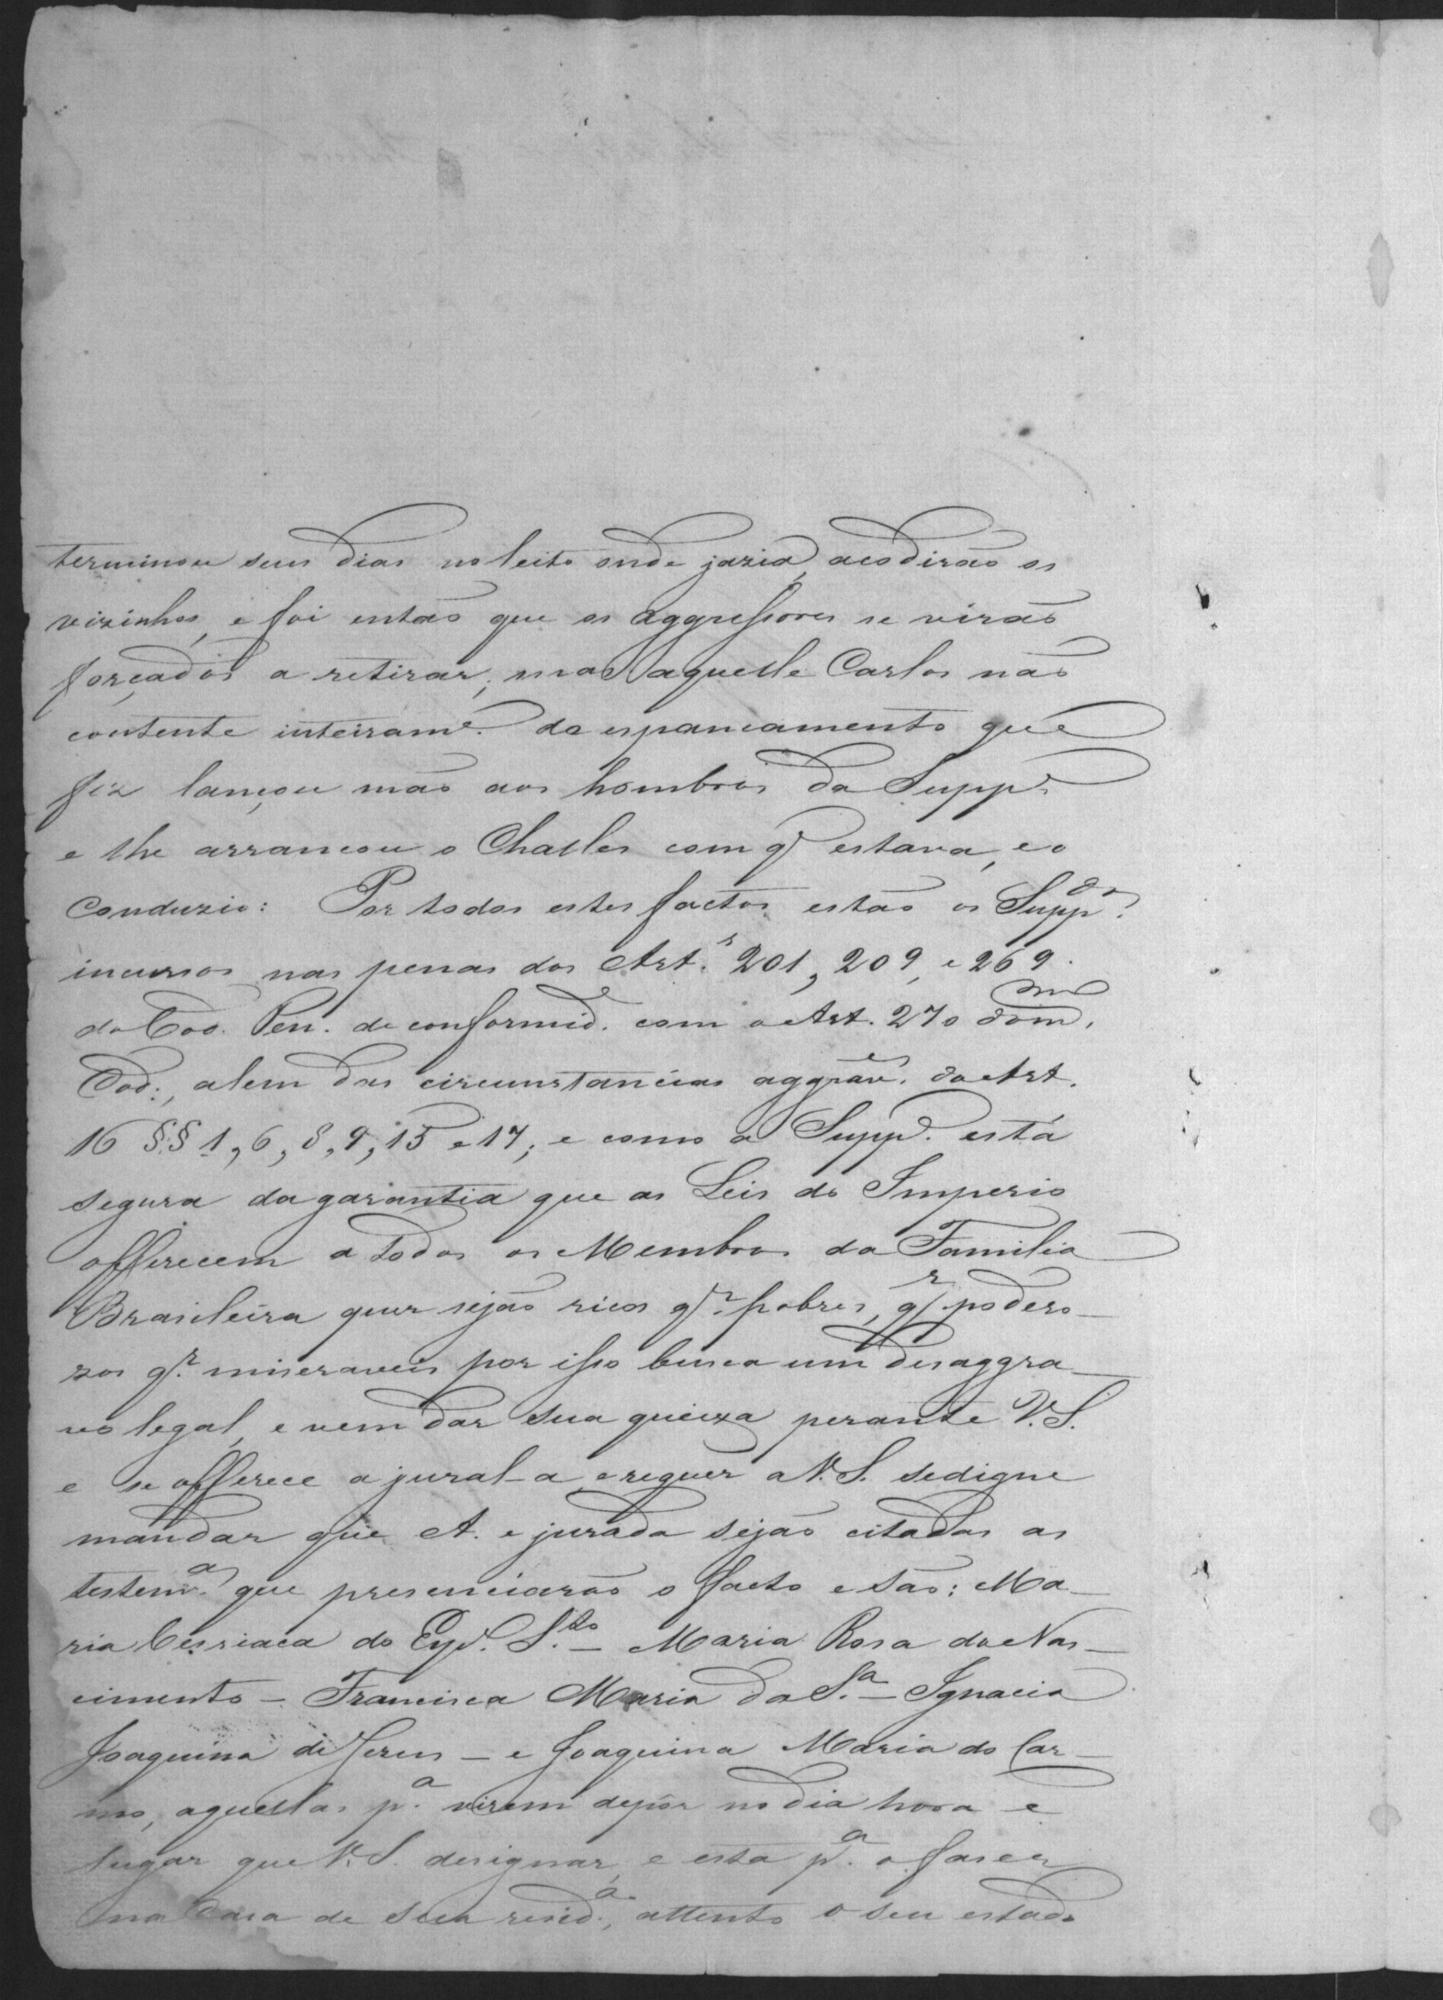 terminou seus dias no leito onde jazia, acodirão os
vizinhos, e foi então que os aggressores se virão
forçados a retirar; mas aquelle Carlos não
contente inteiram.e do espancamento que
fez lançou mão aos hombros da Supp.e
e lhe arrancou o Challes com q' estava, e o
conduzio: Por todos estes factos estão os Supp.dos
incursos nas penas dos Art.s 201, 209, e 269
do Cod. Pen. de conformid.e com o Art. 270 do m.mo
Cod:, alem das circunstancias aggrav.es do Art.
16 §§ 1, 6, 8, 9, 15 e 17; e como a Supp.e está
segura da garantia que as Leis do Imperio
offerecem a todos os Membros da Familia
Brasileira quer sejão ricos q.r pobres, q.r podero-
zos q.r miseraveis por isso busca um desaggra-
vo legal, e vem dar sua queixa perante V.S.
e se offerece a jural-a, e requer a V.S. se digne
mandar que A. e jurada sejão citadas as
testem.as que presenciarão o facto e são: Ma-
ria Cirriaca do Esp.o S.to - Maria Rosa do Nas-
cimento - Francisca Maria da S.a - Ignacia
Joaquina de Jesus - e Joaquina Maria do Car-
mo, aquellas p.a virem depôr no dia hora e
lugar que V.S. designar, e esta p.a o faser
na Casa de sua resid.a, attento o seu estado